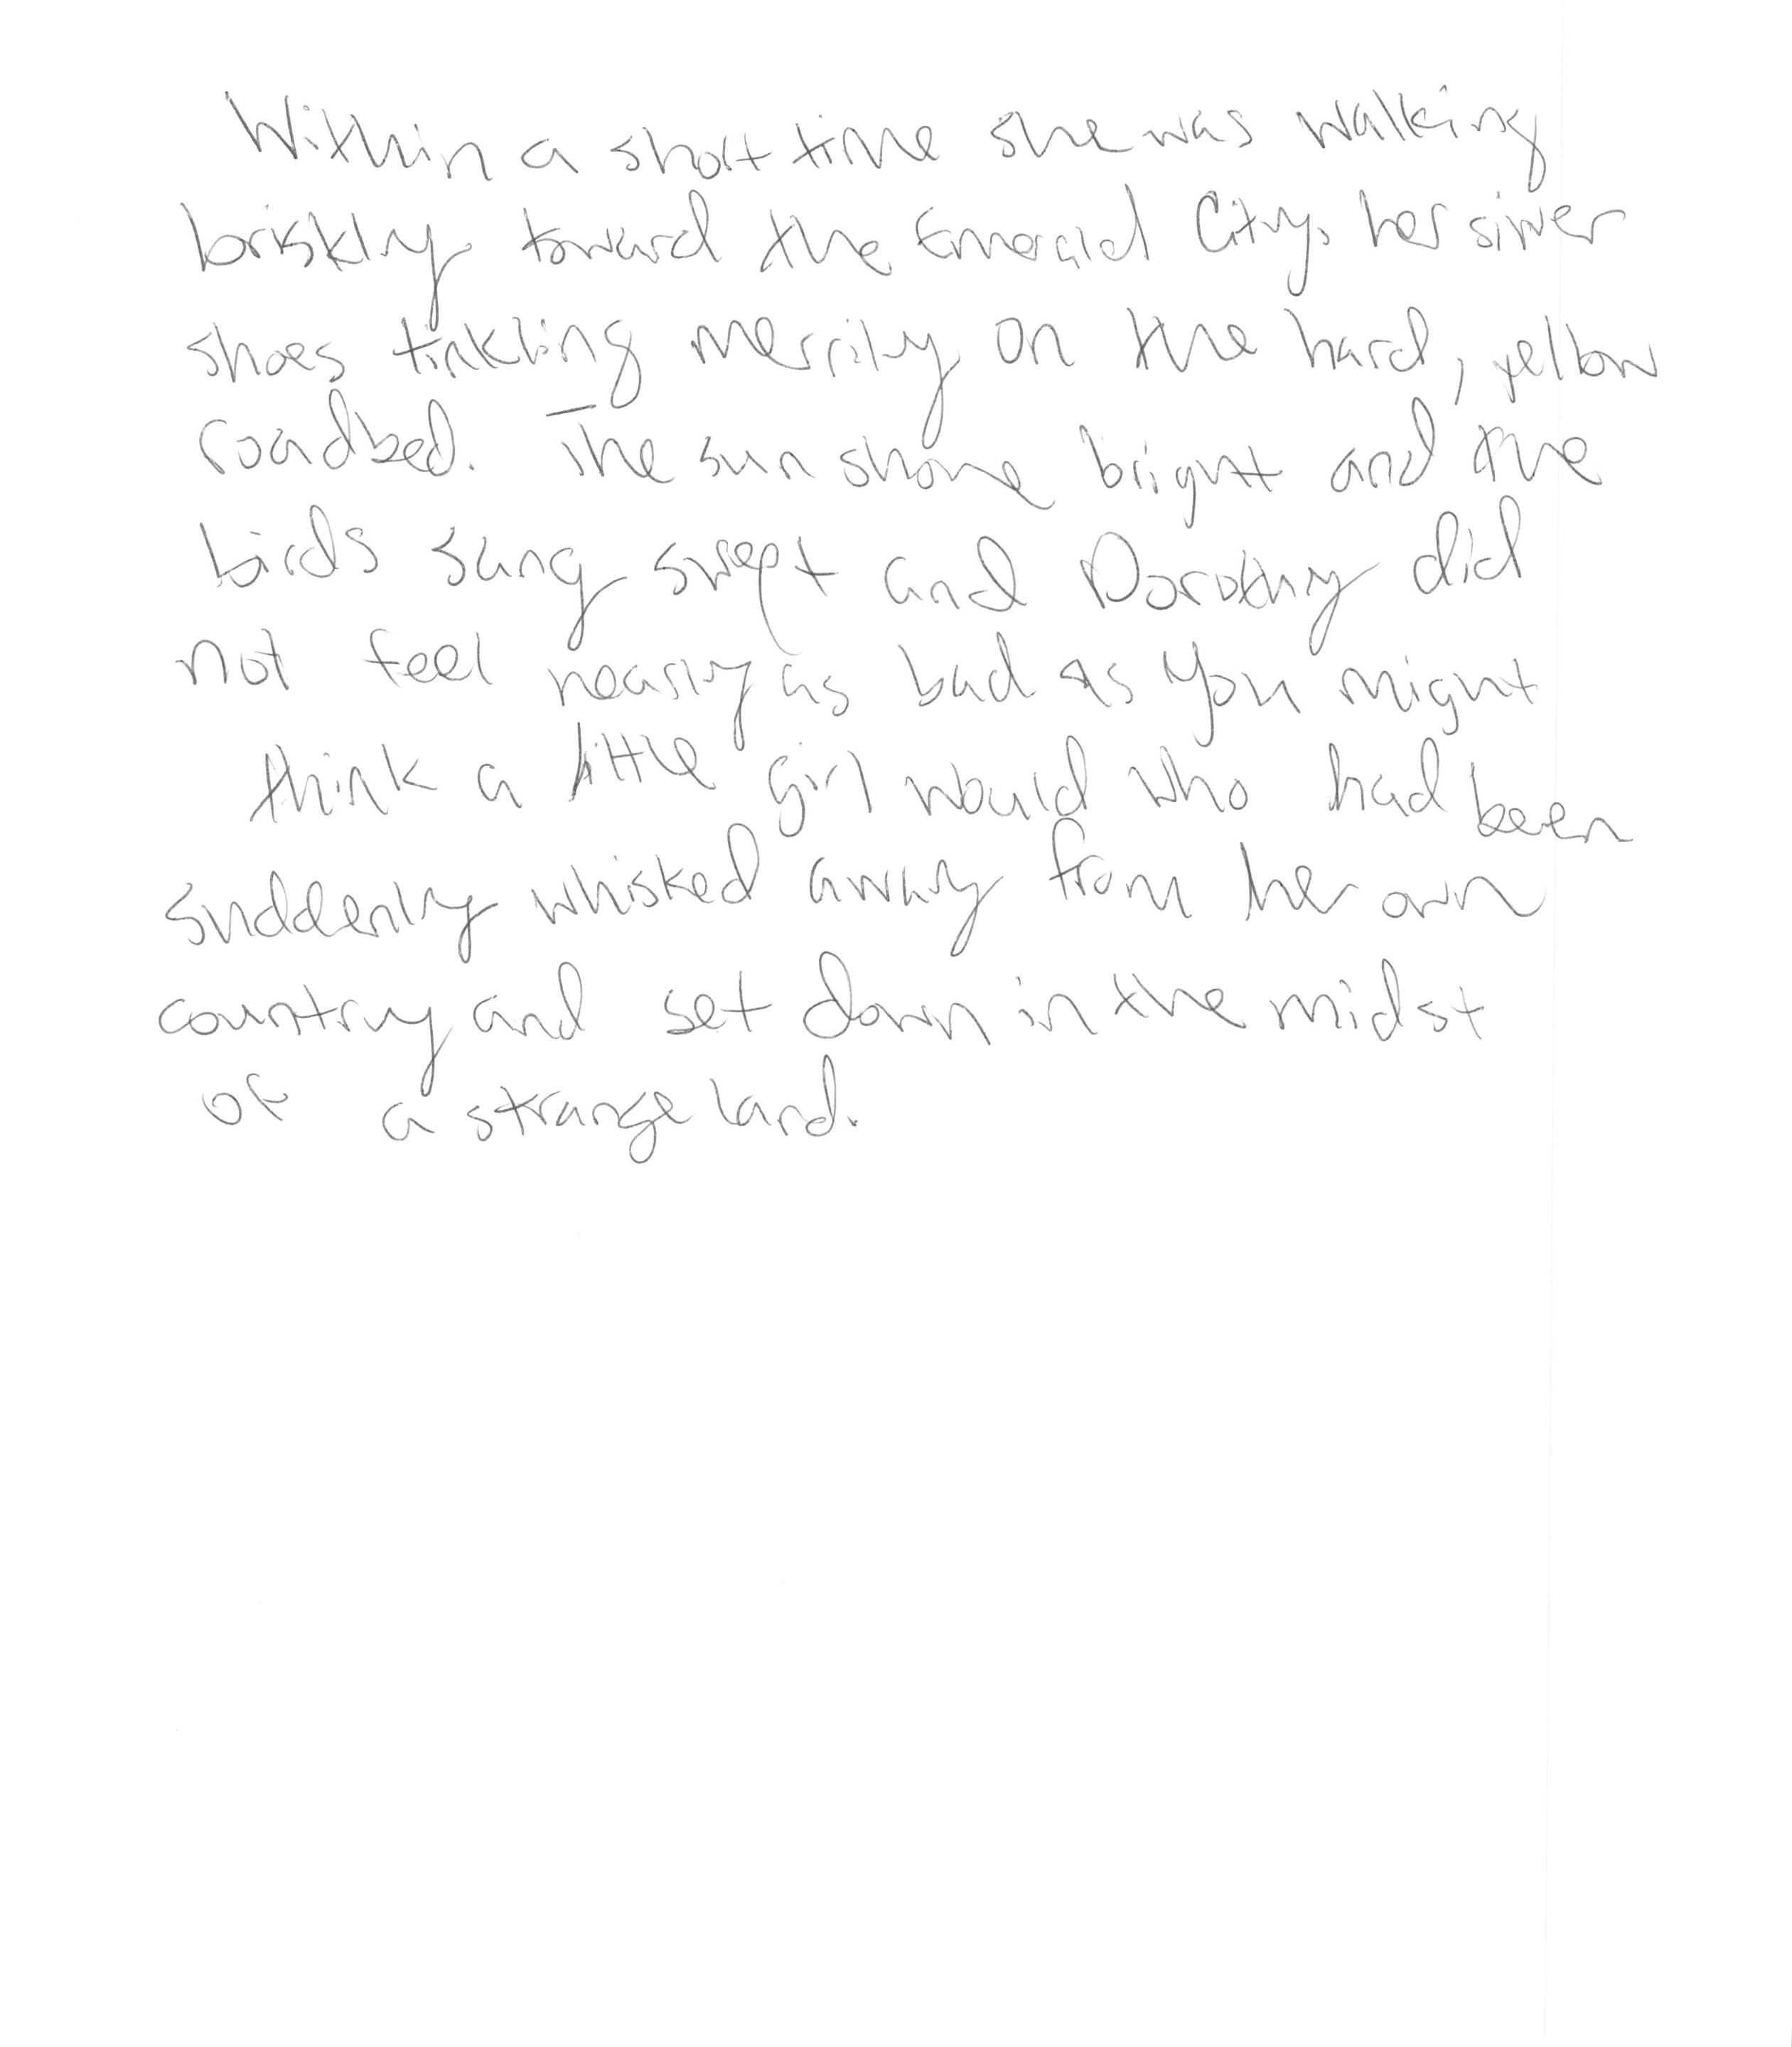 Within a short time she was walking
briskly toward the Emerald City, her silver
shoes tinkling merrily on the hard, yellow
roadbed. The sun shone bright and the
birds sang sweet and Dorothy did
not feel nearly as bad as you might
think a little girl would who had been
suddenly whisked away from her own
country and set down in the midst
of a strange land.